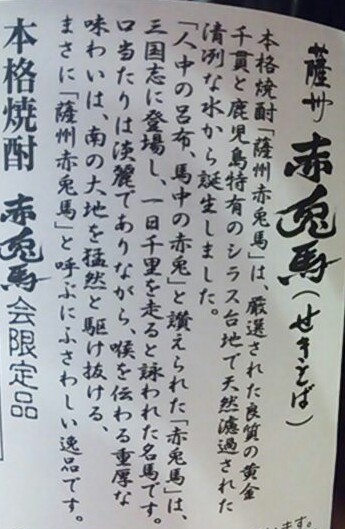 薩州 赤兎馬（せきとば）
本格焼酎「薩州赤兎馬」は、厳選された良質の黄金
千貫と鹿児島特有のシラス台地で天然濾過された
清冽な水から誕生しました。
「人中の呂布、馬中の赤兎」と讃えられた「赤兎馬」は、
三国志に登場し、一日千里を走ると詠われた名馬です。
口当たりは淡麗でありながら、喉を伝わる重厚な
味わいは、南の大地を猛然と駆け抜ける、
まさに「薩州赤兎馬」と呼ぶにふさわしい逸品です。
本格焼酎 赤兎馬会限定品
います。